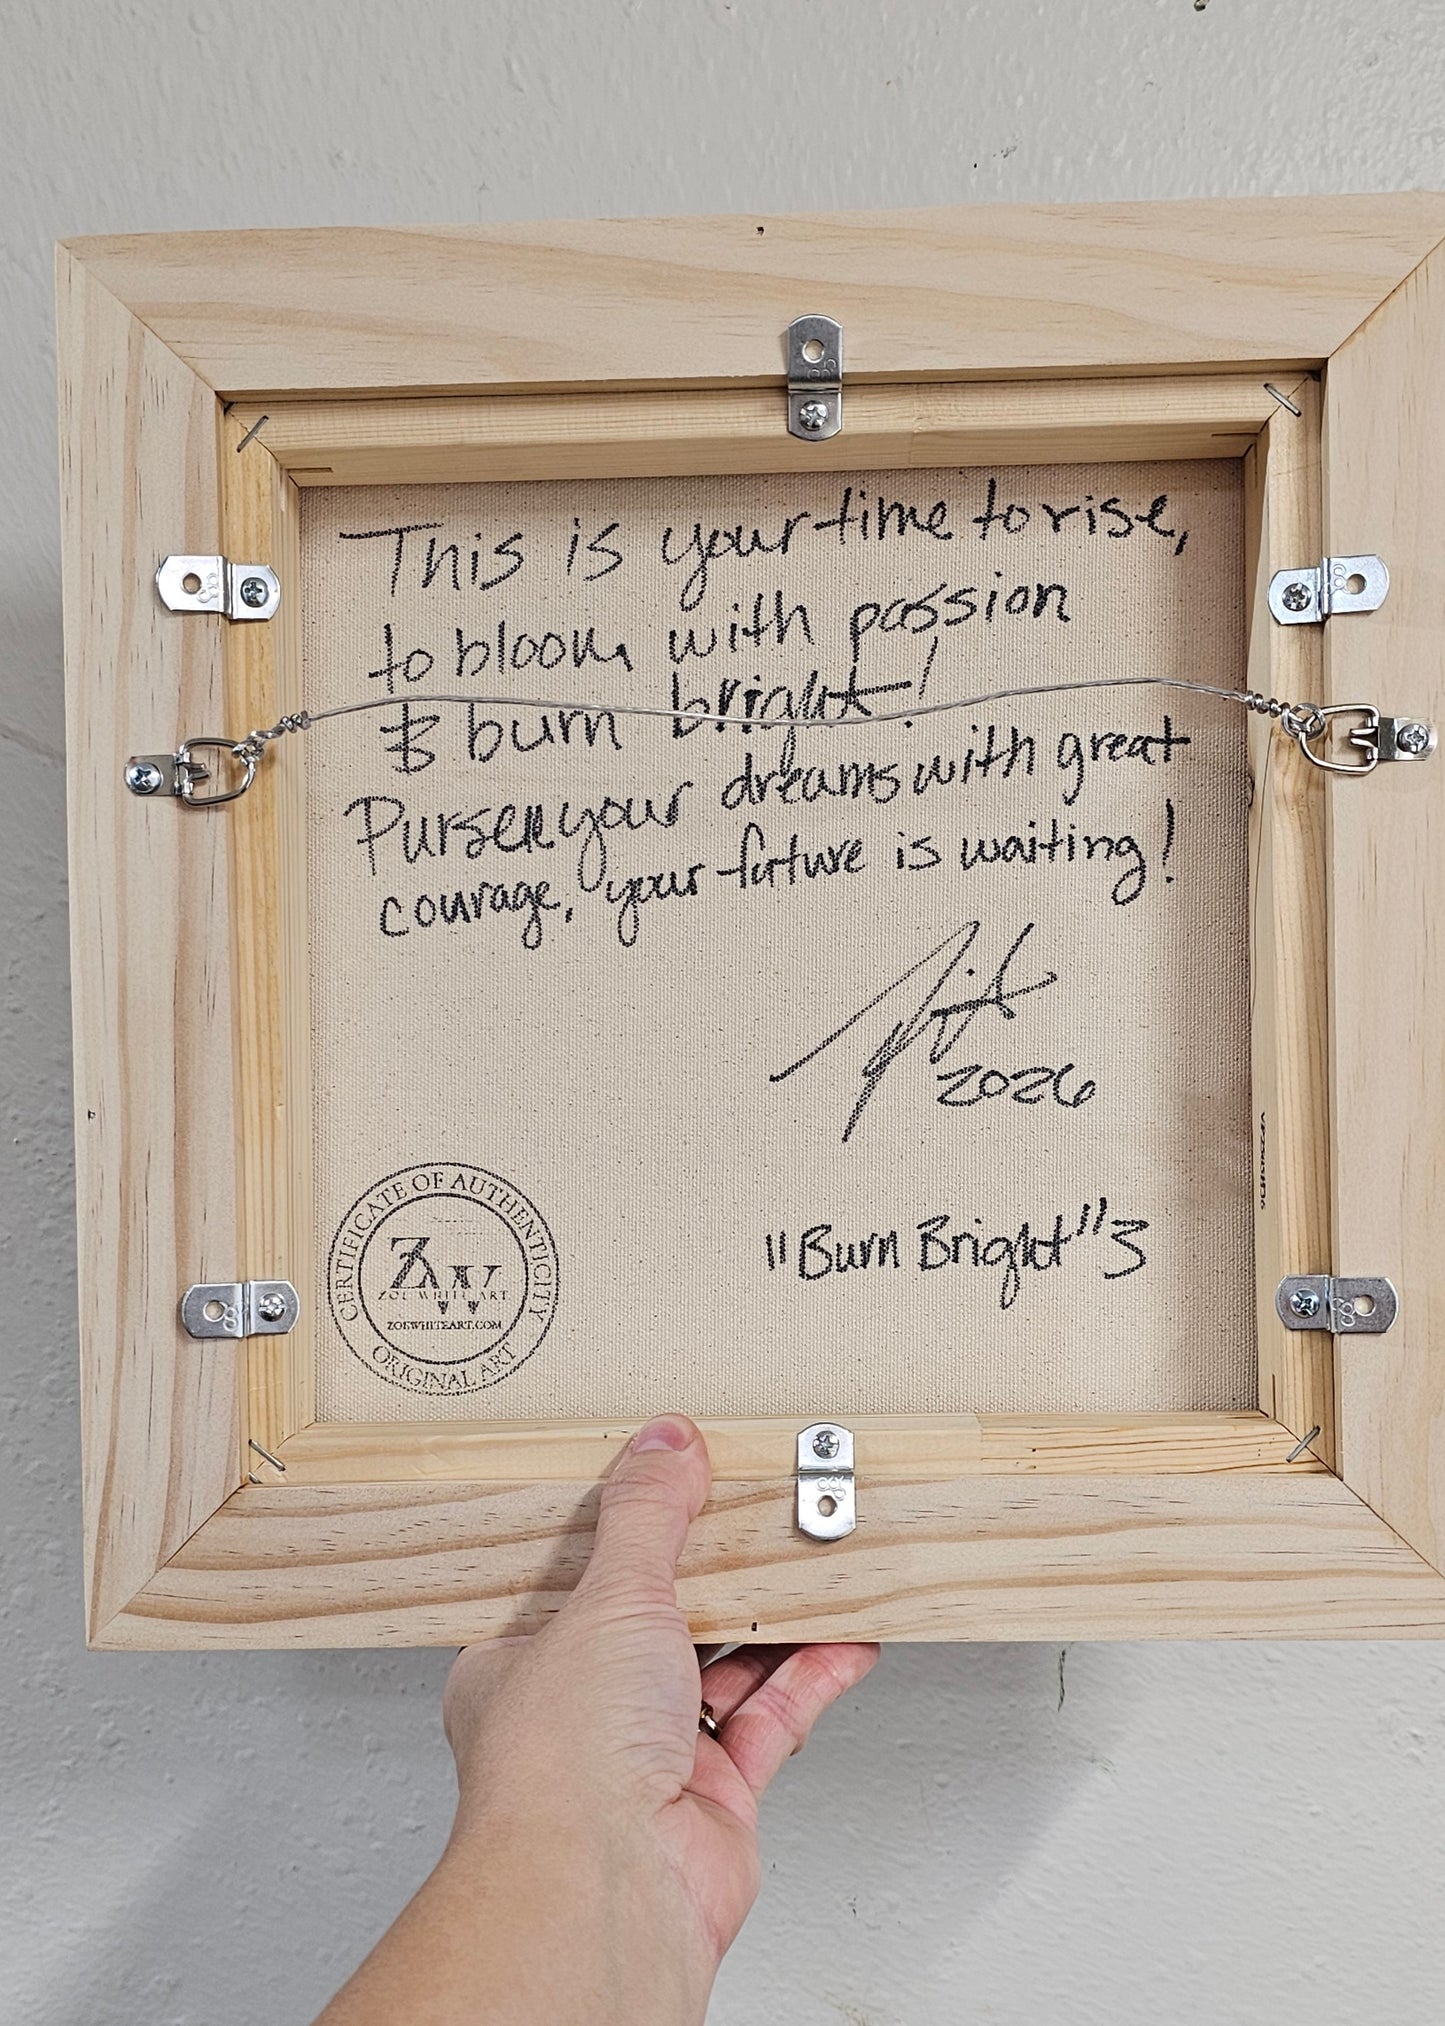 This is your time to rise,
to bloom with passion
& burn bright!
your dreams with great
courage, your future is waiting!
2026
"Burn Bright" 3
CERTIFICATE OF AUTHENTICITY
ZW
ZOE WHITE ART
ZOEWHITEART.COM
ORIGINAL ART